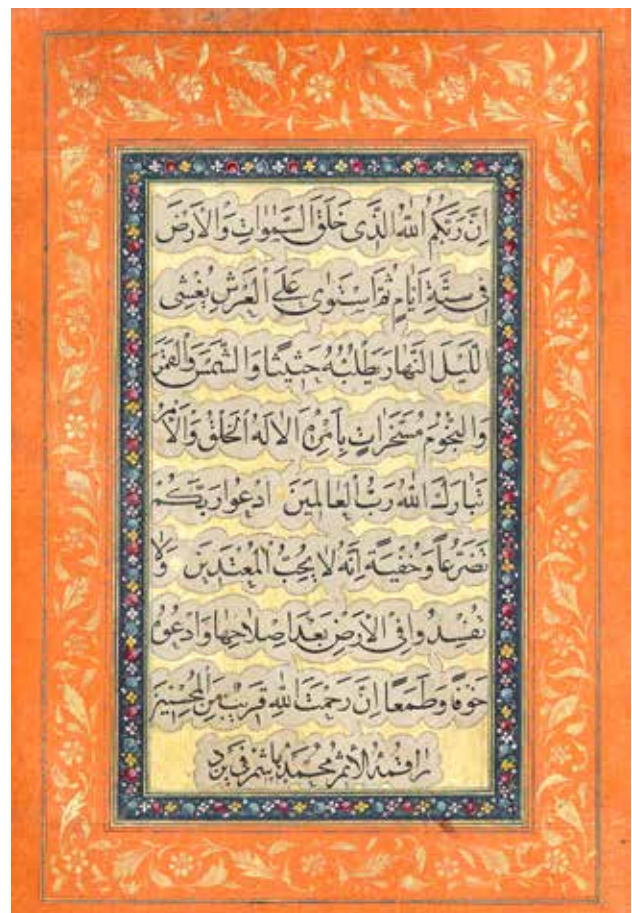 اِنَّ رَبَّكُمُ اللّٰهُ الَّذی خَلَقَ السَّمٰوٰاتِ وَالْاَرْضَ
فی سِتَّةِ اَیّٰامٍ ثُمَّ اسْتَوٰی عَلَی الْعَرْشِ یُغْشِی
اللَّیْلَ النَّهٰارَ یَطْلُبُهُ حَثیثًا وَالشَّمْسَ وَالْقَمَرَ
وَالنُّجُومَ مُسَخَّرٰاتٍ بِاَمْرِهِ اَلٰا لَهُ الْخَلْقُ وَالْاَمْرُ
تَبٰارَكَ اللّٰهُ رَبُّ الْعٰالَمینَ اُدْعُوا رَبَّكُمْ
تَضَرُّعًا وَخُفْیَةً اِنَّهُ لٰا یُحِبُّ الْمُعْتَدینَ وَلٰا
تُفْسِدُوا فِی الْاَرْضِ بَعْدَ اِصْلٰاحِهٰا وَادْعُوهُ
خَوْفًا وَطَمَعًا اِنَّ رَحْمَتَ اللّٰهِ قَریبٌ مِنَ الْمُحْسِنینَ
راقمه الآثم محمد هاشم فی یزد